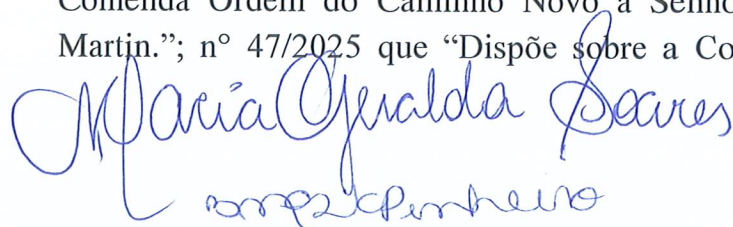 Comenda Ordem do Caminho Novo à Senho
Martin.”; n° 47/2025 que “Dispõe sobre a Co
Maria Geralda Soares
Pinheiro